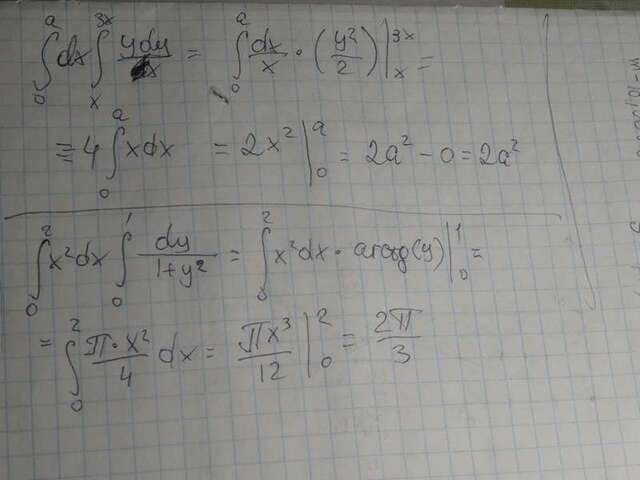 ∫₀ᵃ dx ∫ₓ³ˣ ydy/x = ∫₀ᵃ dx/x · (y²/2)|ₓ³ˣ =
= 4 ∫₀ᵃ xdx = 2x²|₀ᵃ = 2a² - 0 = 2a²
∫₀² x²dx ∫₀¹ dy/(1+y²) = ∫₀² x²dx · arctg(y)|₀¹ =
= ∫₀² π·x²/4 dx = πx³/12|₀² = 2π/3